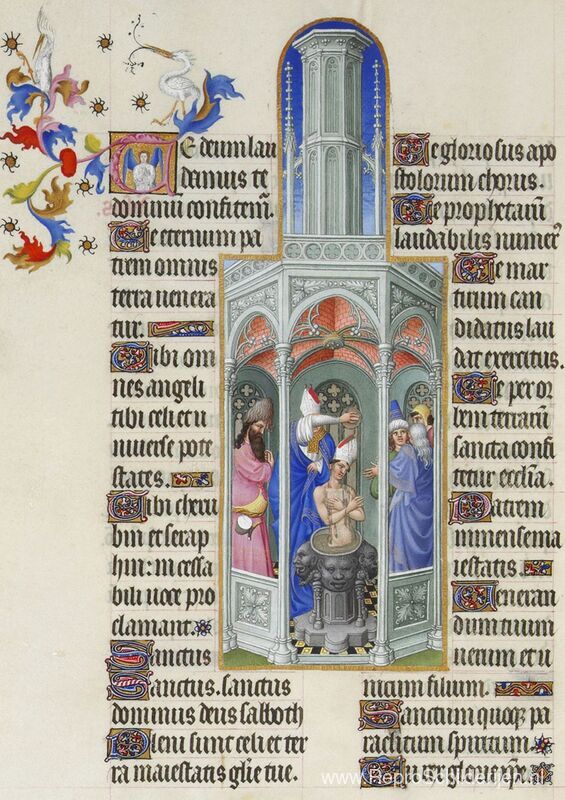 Te deum lau
damus te
dominũ confitem̃.
Te eternum pa
trem omnis
terra uenera
tur.
Tibi om
nes angeli
tibi celi et u
niuerse pote
states.
Tibi cheru
bin et serap
hin: in cessa
bili uoce pro
clamant.
Sanctus
Sanctus. sanctus
dominus deus sabaoth
Pleni sunt celi et ter
ra maiestatis gl̃ie tue.
Te gloriosus apo
stolorum chorus.
Te prophetarũ
laudabilis numerꝰ
Te mar
tirum can
didatus lau
dat exercitus.
Te per or
bem terrarũ
sancta confi
tetur eccl̃ia.
Patrem
inmense ma
iestatis.
Veneran
dum tuum
uerum et u
nicum filium.
Sanctum quoqꝫ pa
raclitum spiritum.
Tu rex glorie xp̃e.
www.ReproSchilderijen.nl